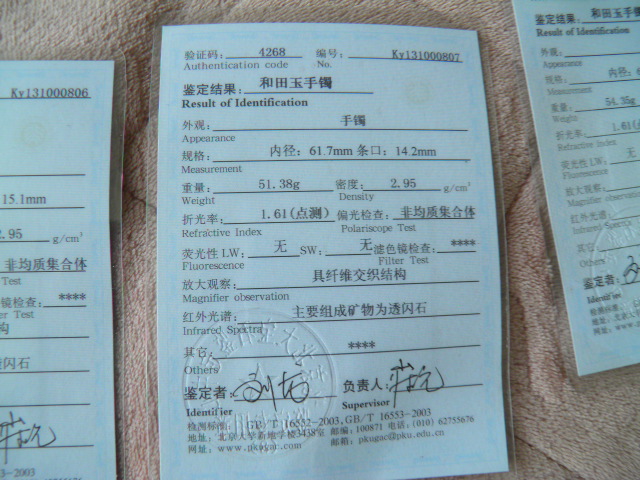 Ky131000806
15.1mm
2.95 g/cm³
非均质集合体
镜检查：****
r Test
构
透闪石
****
-2003
验证码： 4268 编号： Ky131000807
Authentication code No.
鉴定结果： 和田玉手镯
Result of Identification
外观： 手镯
Appearance
规格： 内径：61.7mm 条口：14.2mm
Measurement
重量： 51.38g 密度： 2.95 g/cm³
Weight Density
折光率： 1.61(点测) 偏光检查： 非均质集合体
Refractive Index Polariscope Test
荧光性 LW： 无 SW： 无 滤色镜检查： ****
Fluorescence Filter Test
放大观察： 具纤维交织结构
Magnifier observation
红外光谱： 主要组成矿物为透闪石
Infrared Spectra
其它： ****
Others
鉴定者： 负责人：
Identifier Supervisor
检测标准： GB/T 16552-2003,GB/T 16553-2003
地址：北京大学新地学楼3438室 邮编：100871 电话：(010) 62755676
网址：www.pkugac.com 邮箱：pkugac@pku.edu.cn
鉴定结果： 和田玉手镯
Result of Identification
外观：
Appearance
规格： 内径：6
Measurement
重量： 54.35g
Weight
折光率： 1.61(点
Refractive Index
荧光性 LW： 无
Fluorescence
放大观察：
Magnifier observation
红外光谱：
Infrared Spectra
其它：
Others
鉴定者：
Identifier
检测标准：
地址：北京大
网址：www.